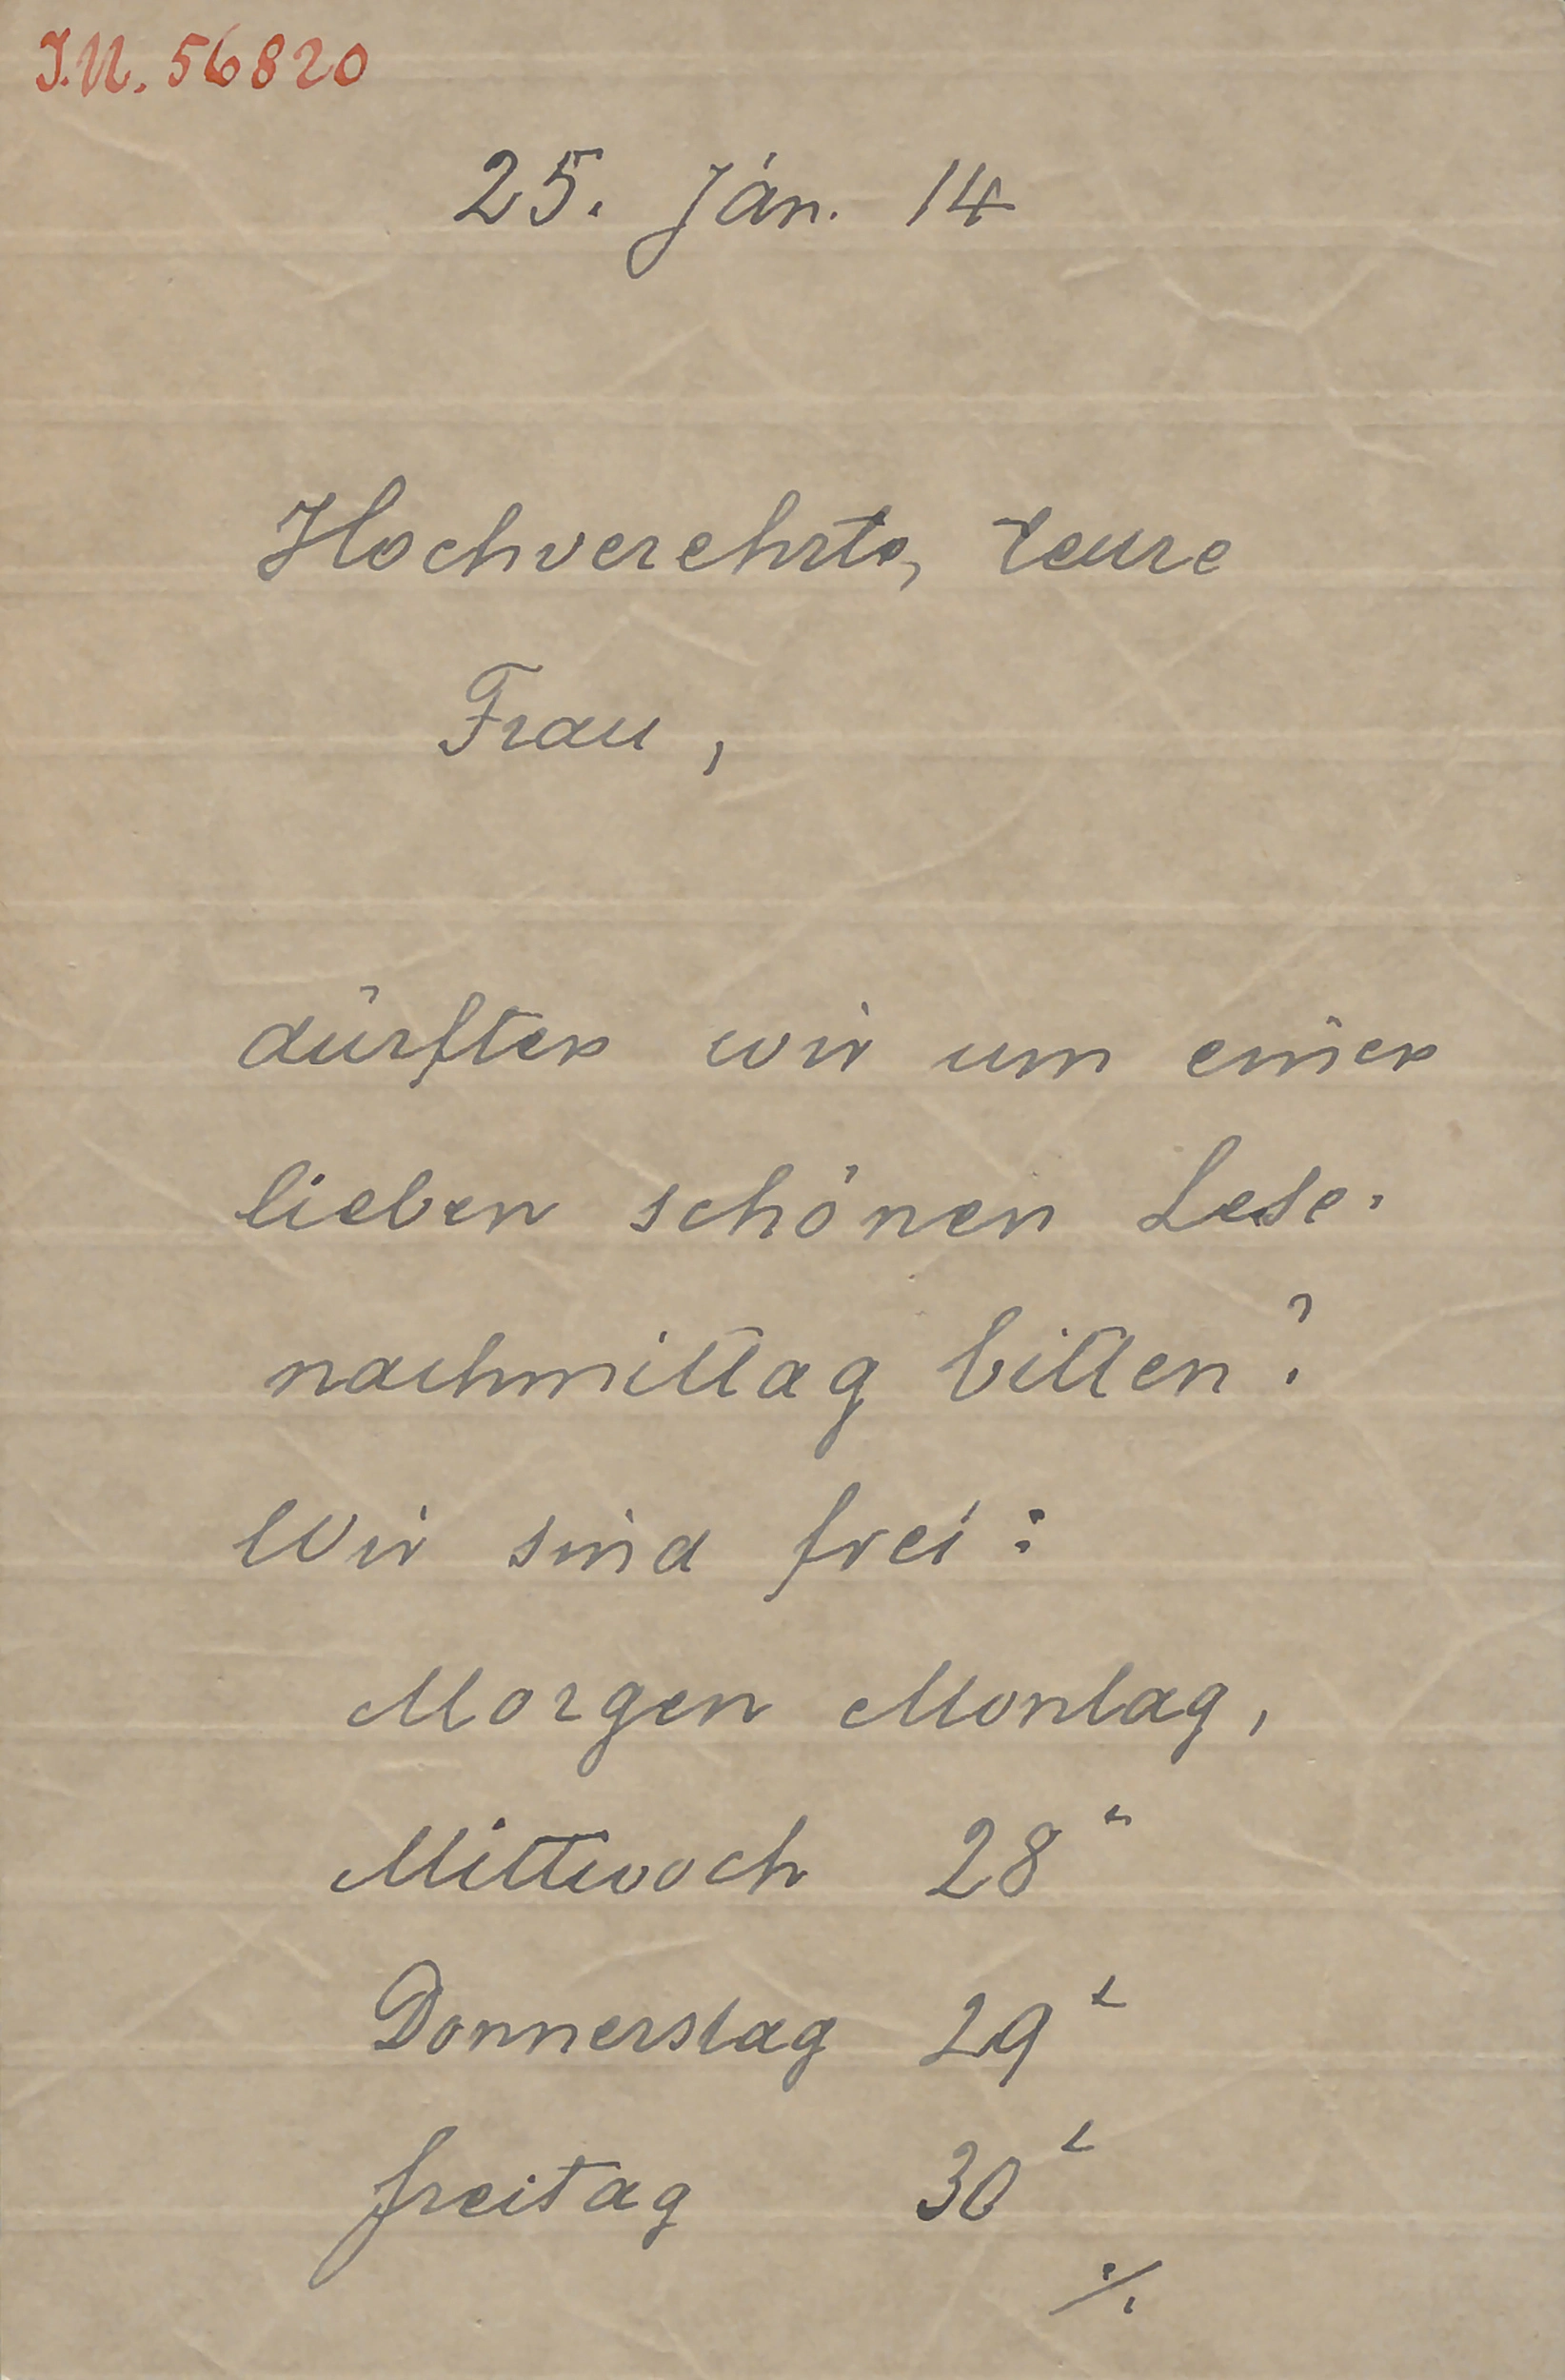 J.N. 56820
25. Jän. 14
Hochverehrte, teure
Frau,
dürften wir um einen
lieben schönen Lese-
nachmittag bitten?
Wir sind frei:
Morgen Montag,
Mittwoch 28t
Donnerstag 29t
freitag 30t
./.